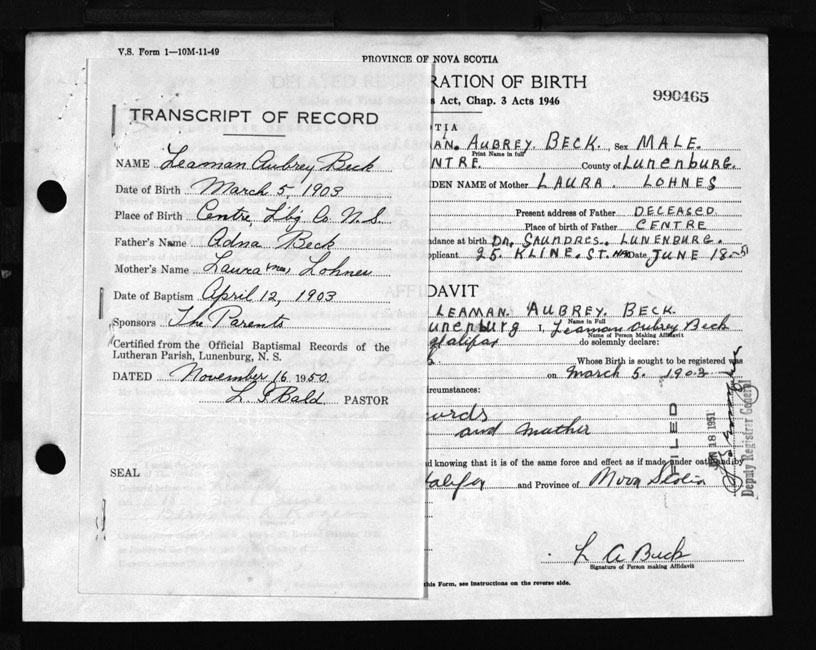 V.S. Form 1—10M-11-49
TRANSCRIPT OF RECORD
NAME Leaman Aubrey Beck
Date of Birth March 5, 1903
Place of Birth Centre, L'b'g Co. N.S.
Father's Name Adna Beck
Mother's Name Laura Lohnes
Date of Baptism April 12, 1903
Sponsors The Parents
Certified from the Official Baptismal Records of the
Lutheran Parish, Lunenburg, N. S.
DATED November 16 1950.
Bald PASTOR
SEAL
PROVINCE OF NOVA SCOTIA
RATION OF BIRTH
s Act, Chap. 3 Acts 1946
990465
TIA
AN. AUBREY. BECK. Sex MALE.
Print Name in full
NTRE. County of LUNENBURG.
DEN NAME of Mother LAURA. LOHNES
Present address of Father DECEASED.
Place of birth of Father CENTRE
dance at birth DR. SAUNDRES. LUNENBURG.
pplicant 25. KLINE. ST. Date JUNE 18-51
DAVIT
LEAMAN. AUBREY. BECK.
Name in Full
unenburg I, Leaman Aubrey Beck
Name of Person Making Affidavit
Halifax do solemnly declare:
Whose Birth is sought to be registered was
on March 5. 1903
ircumstances:
cords
and mother
d knowing that it is of the same force and effect as if made under oath and by
Halifax and Province of Nova Scotia
FILED
JUN 18 1951
Deputy Registrar General
L A Beck
Signature of Person making Affidavit
this Form, see instructions on the reverse side.